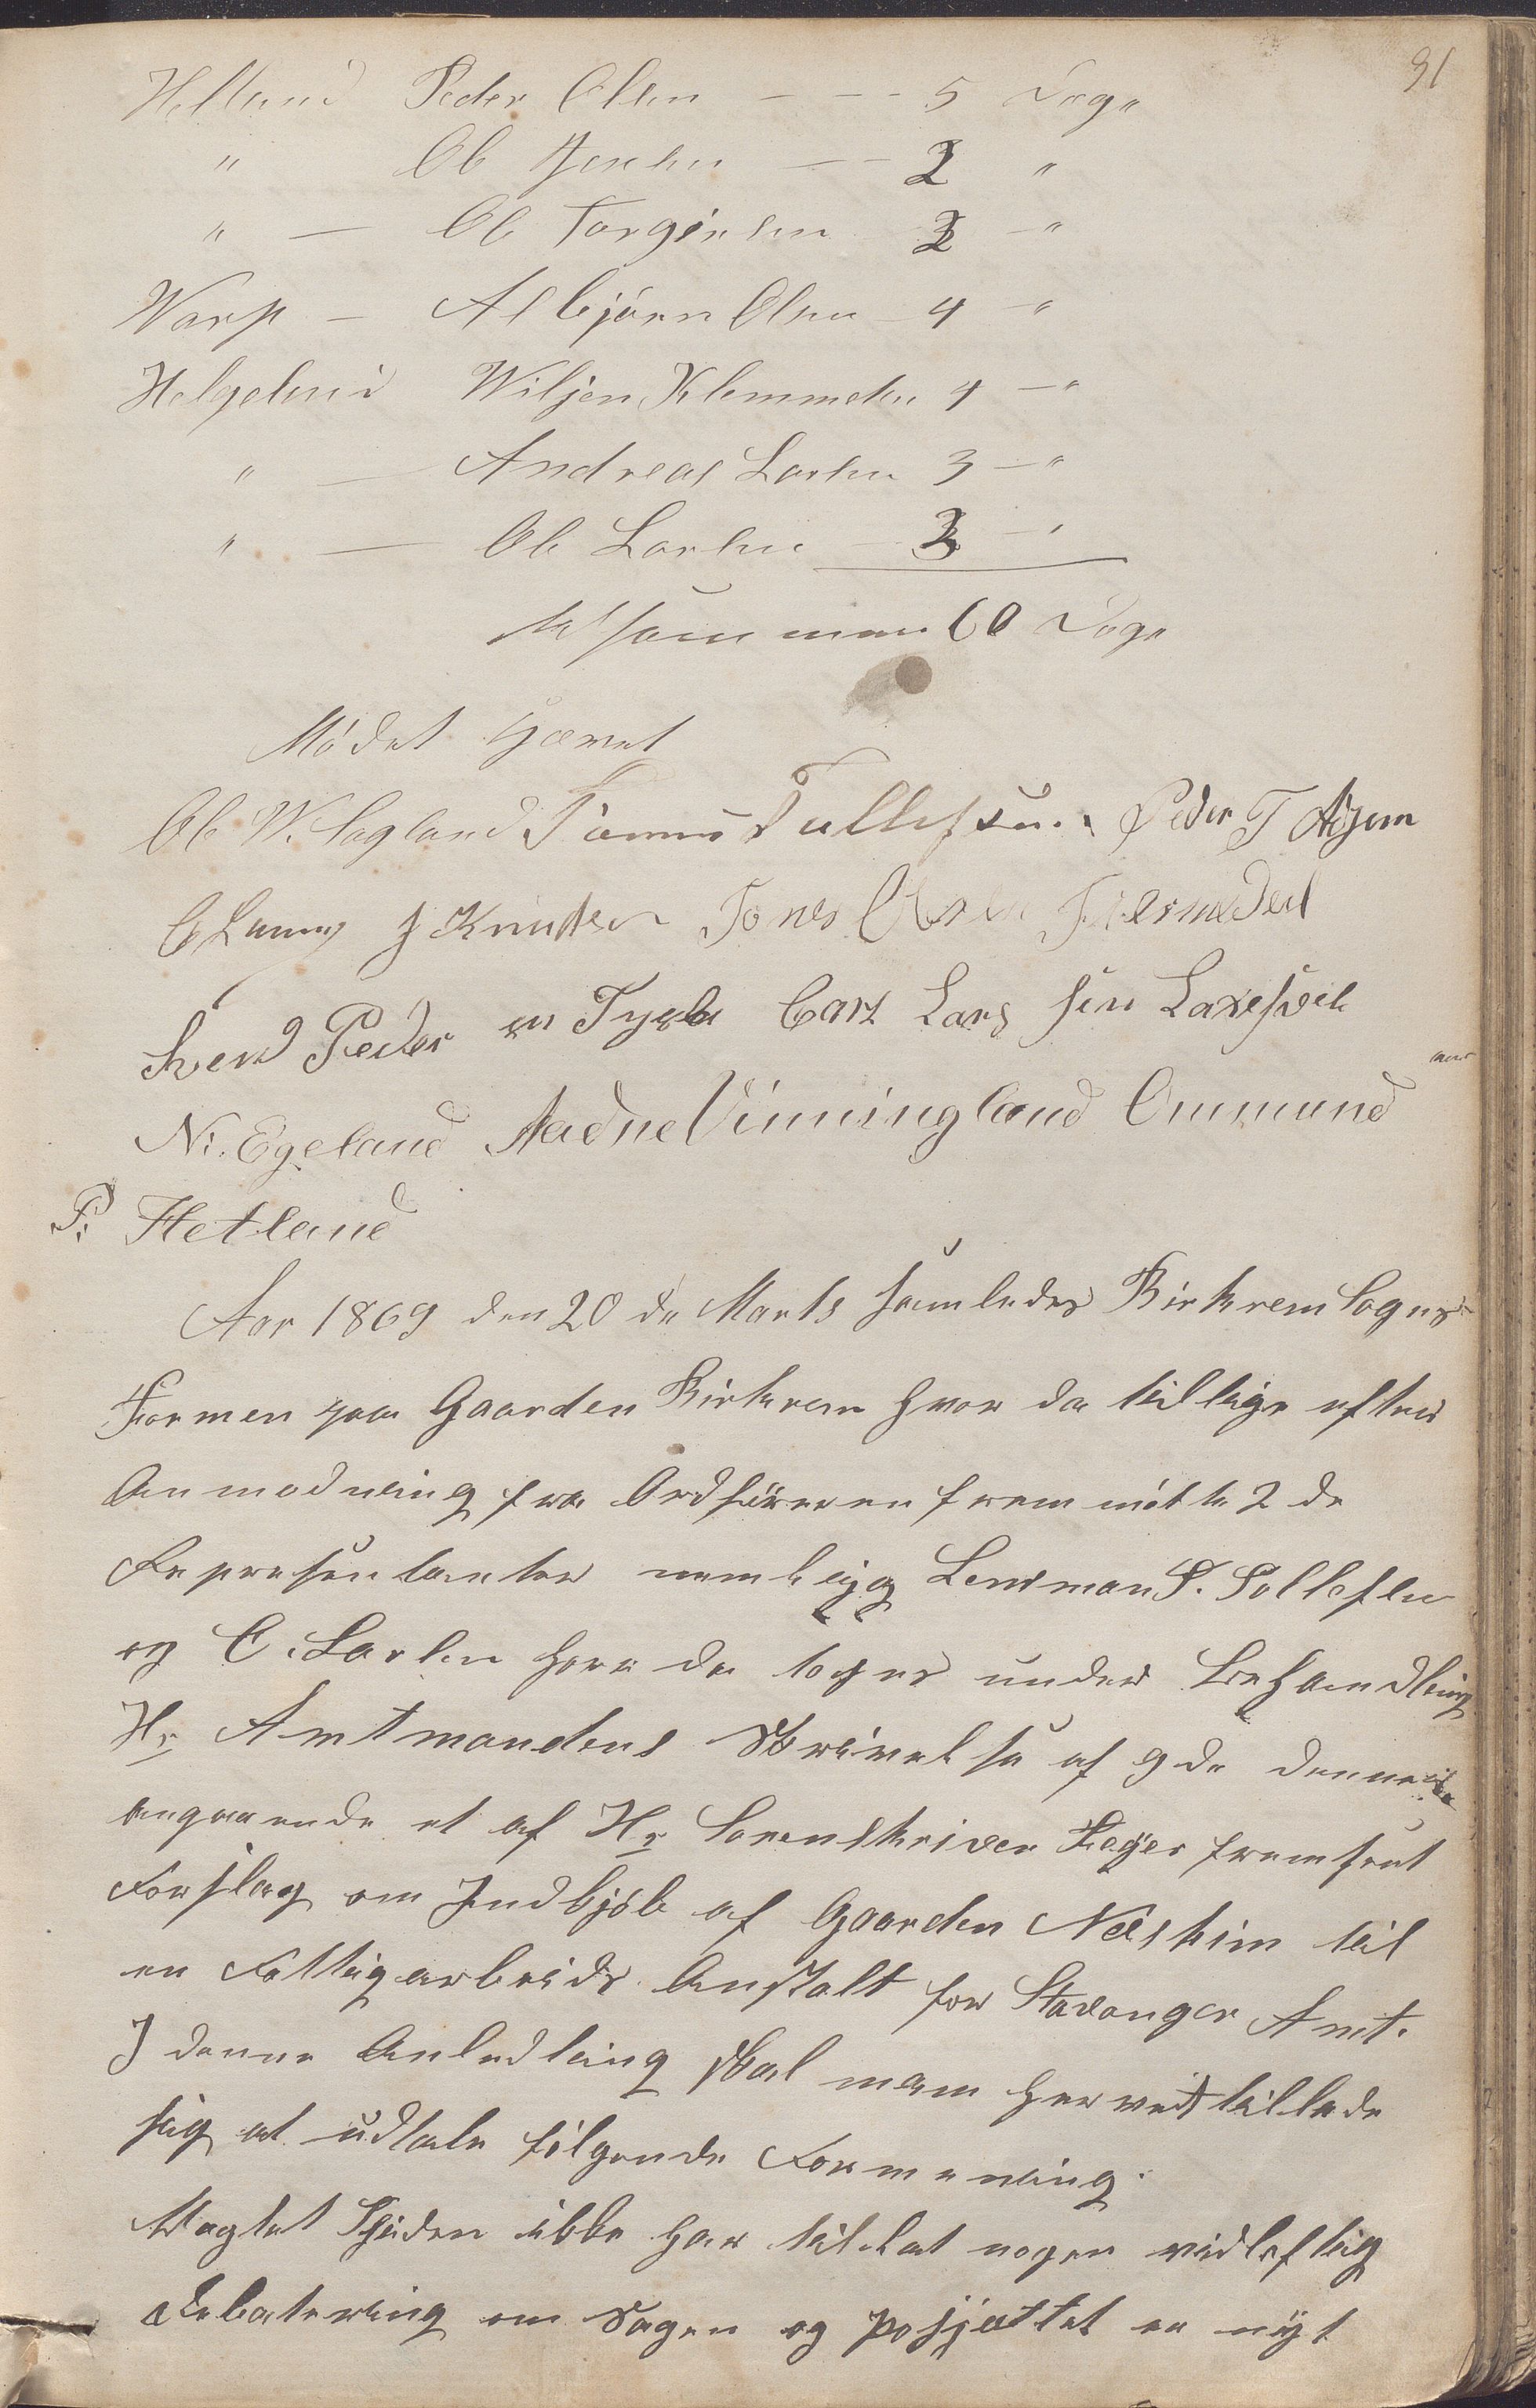 91
Helland Peder Olsen - - - 5 Dage
" Ole Jensen - - 2 "
" - Ole Torgersen 2 - "
Warp - Asbjörn Olsen 4 - "
Helgeland Wiljen Klemmetsen 4 - "
" - Andreas Larsen 3 - "
" - Ole Larsen - 3 - "
tilsammen 60 Dage
Mödet hævet
Ole W. Sagland Tønnes Tollefsen Peder T
O Lauing J Knutsen Tones Olsen Fiermedal
Svend Peder sen Tysla Carl Lars sen Laxesvel
N. Egeland Aadne Vinningland Ommund
P. Hetland
Aar 1869 den 20de Marts samledes Birkrem Sogns
Formen paa Gaarden Birkrem hvor da tillige efter
Anmodning fra Ordföreren fremmötte 2de
Repræsentanter nemlig Lensmand T. Tollefsen
og C. Larsen hvor da toges under Behandling
Hr Amtmandens Skrivelse af 9de dennes
angaaende et af Hr Sorenskriver Feyer fremsat
Forslag om Indkjöb af Gaarden Næsheim til
en Fattigarbeids Anstalt for Stavanger Amt.
I denne Anledning skal man herved tillade
sig at udtale fölgende Formening:
Uagtet Tiden ikke har tilladt nogen vidlöftig
Debatering om Sagen og Posjættet er nyt